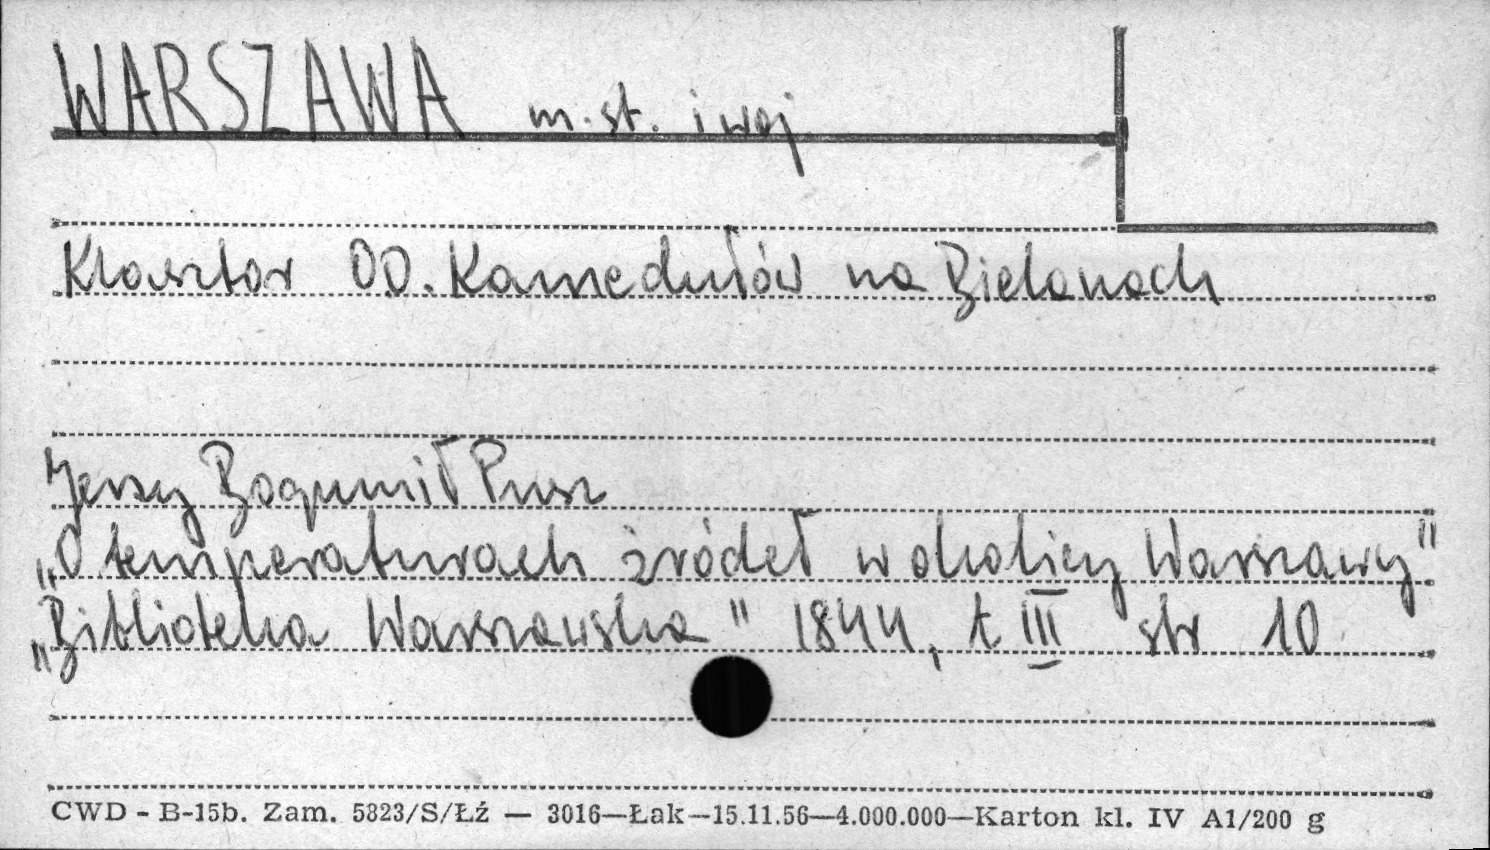 WARSZAWA m. st. i woj
Klasztor OO. Kamedułów na Bielanach
Jerzy Bogumił Pusz
„O temperaturach źródeł w okolicy Warszawy"
„Biblioteka Warszawska" 1844, t III str 10
CWD - B-15b. Zam. 5823/S/Łź — 3016—Łak—15.11.56—4.000.000—Karton kl. IV A1/200 g